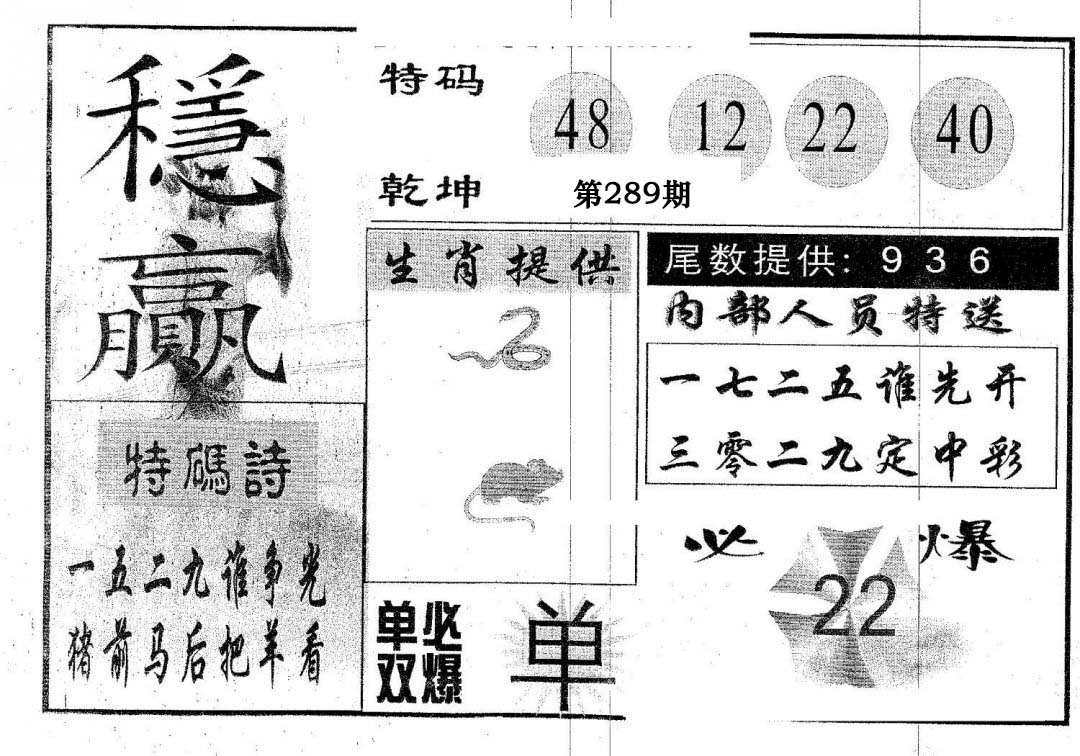 穩
贏
特码
乾坤
48 12 22 40
第289期
生肖提供
尾数提供: 9 3 6
内部人员特送
一七二五谁先开
三零二九定中彩
特碼詩
一五二九谁争光
猪前马后把羊看
单双必爆
单
必爆
22